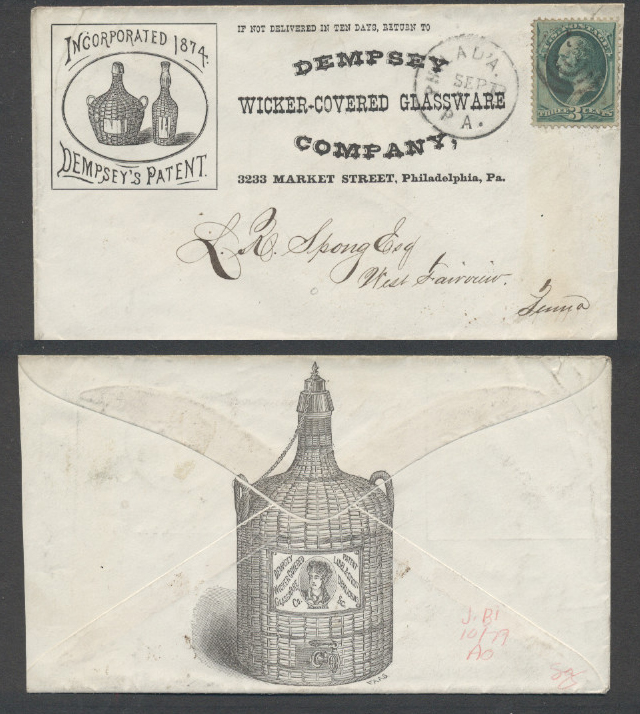 INCORPORATED 1874.
14
DEMPSEY'S PATENT.
IF NOT DELIVERED IN TEN DAYS, RETURN TO
DEMPSEY
WICKER-COVERED GLASSWARE
COMPANY,
3233 MARKET STREET, Philadelphia, Pa.
PHILAD'A.
SEP
PA.
THREE 3 CENTS
L. R. Spong Esq
West Fairview.
Penna
DEMPSEY
WICKER-COVERED
GLASSWARE
Co.
PATENT
&c.
J. BI
10/79
AO